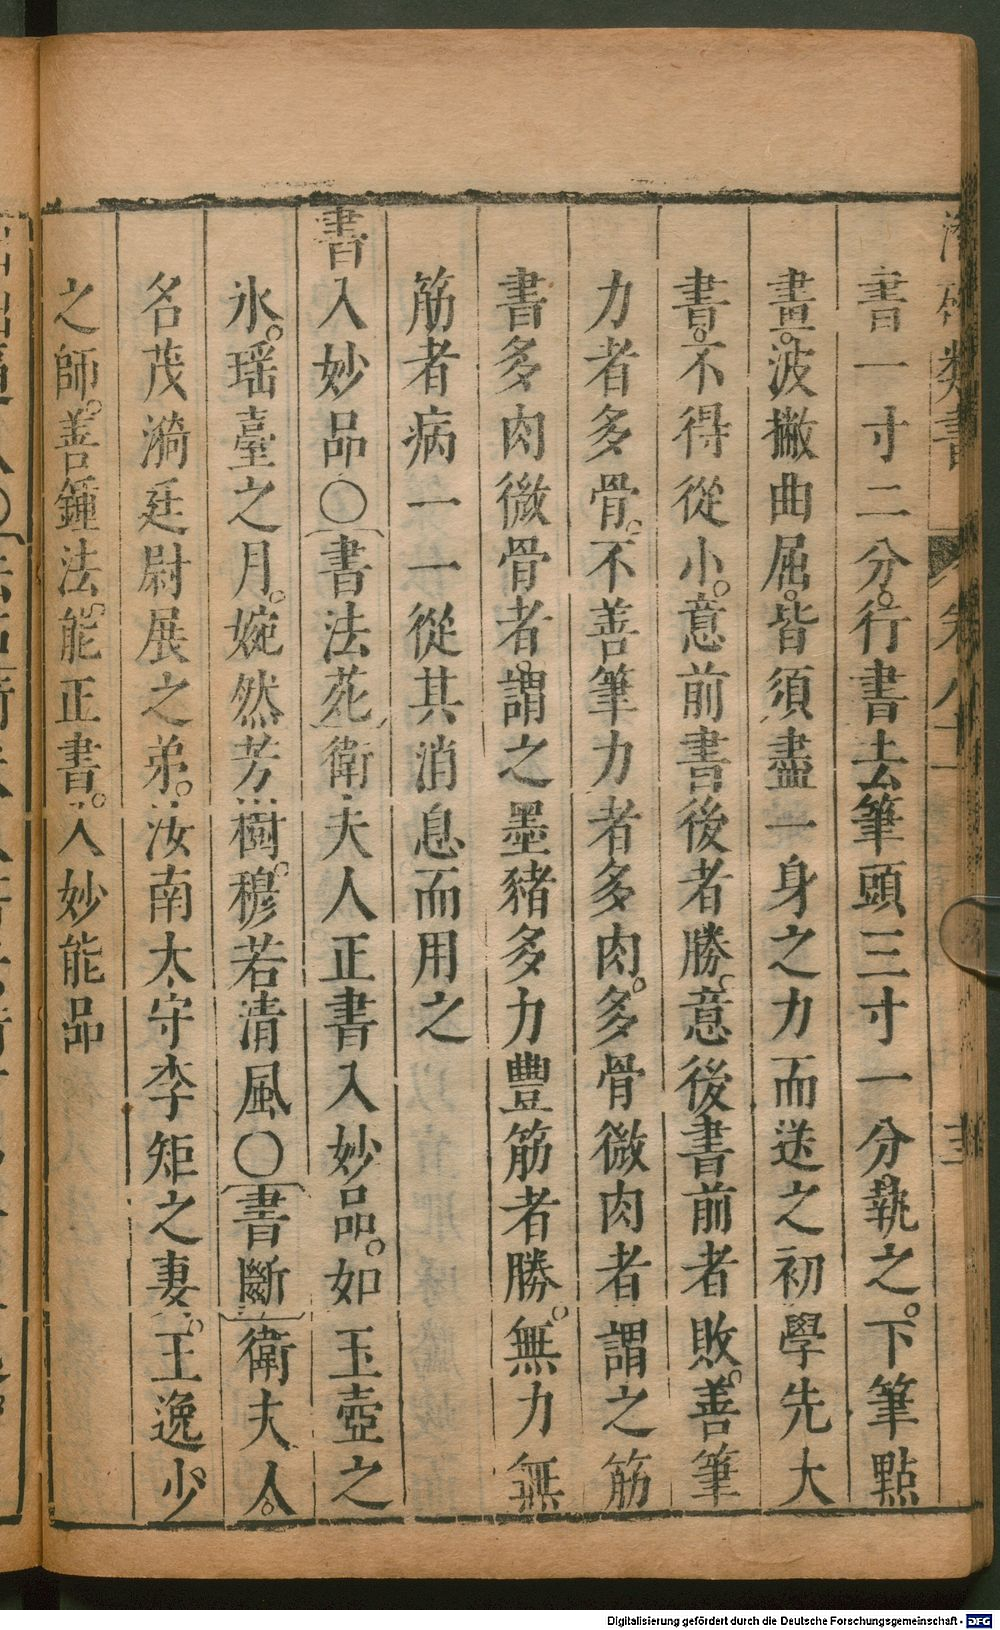 類書 卷八十一
書一寸二分。行書去筆頭三寸一分。執之。下筆點
畫。波撇曲屈。皆須盡一身之力而送之初學先大
書。不得從小。意前書後者勝。意後書前者敗。善筆
力者多骨。不善筆力者多肉。多骨微肉者謂之筋
書多肉微骨者。謂之墨豬多力豐筋者勝。無力無
筋者病一一從其消息而用之
書入妙品〇〔書法苑〕衛夫人正書入妙品。如玉壺之
氷。瑶臺之月。婉然芳樹。穆若清風〇〔書斷〕衛夫人。
名茂漪廷尉展之弟。汝南太守李矩之妻。王逸少
之師。善鍾法。能正書。入妙能品
Digitalisierung gefördert durch die Deutsche Forschungsgemeinschaft - DFG